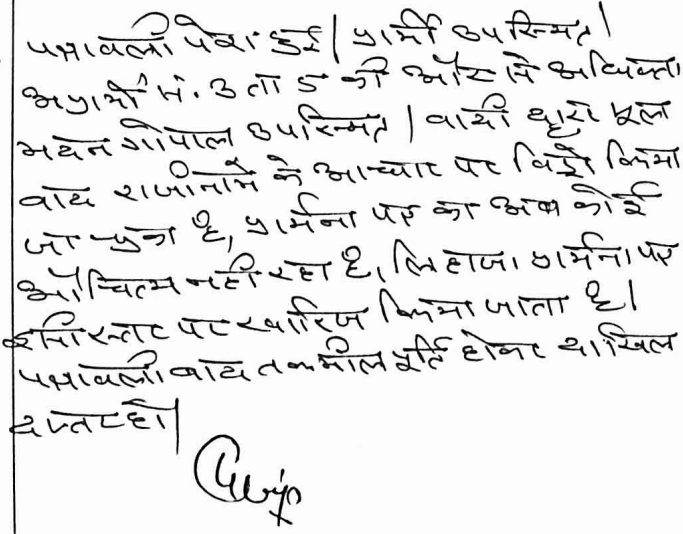 पत्रावली पेश हुई | प्रार्थी उपस्थित |
अप्रार्थी नं. 3 ता 5 की ओर से अधिवक्ता
मदन गोपाल उपस्थित | वादी द्वारा मूल
वाद राजीनामे के आधार पर विड्रो किया
जा चुका है, प्रार्थना पत्र का अब कोई
औचित्य नहीं रहा है, लिहाजा प्रार्थना पत्र
इसी स्तर पर खारिज किया जाता है।
पत्रावली बाद तकमील पूर्ति होकर दाखिल
दफ्तर हो|